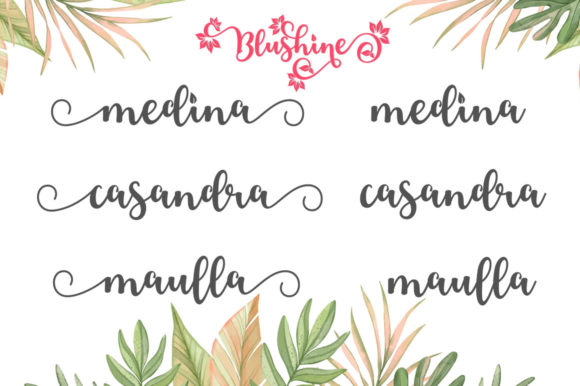 Blushine
medina medina
casandra casandra
maulla maulla